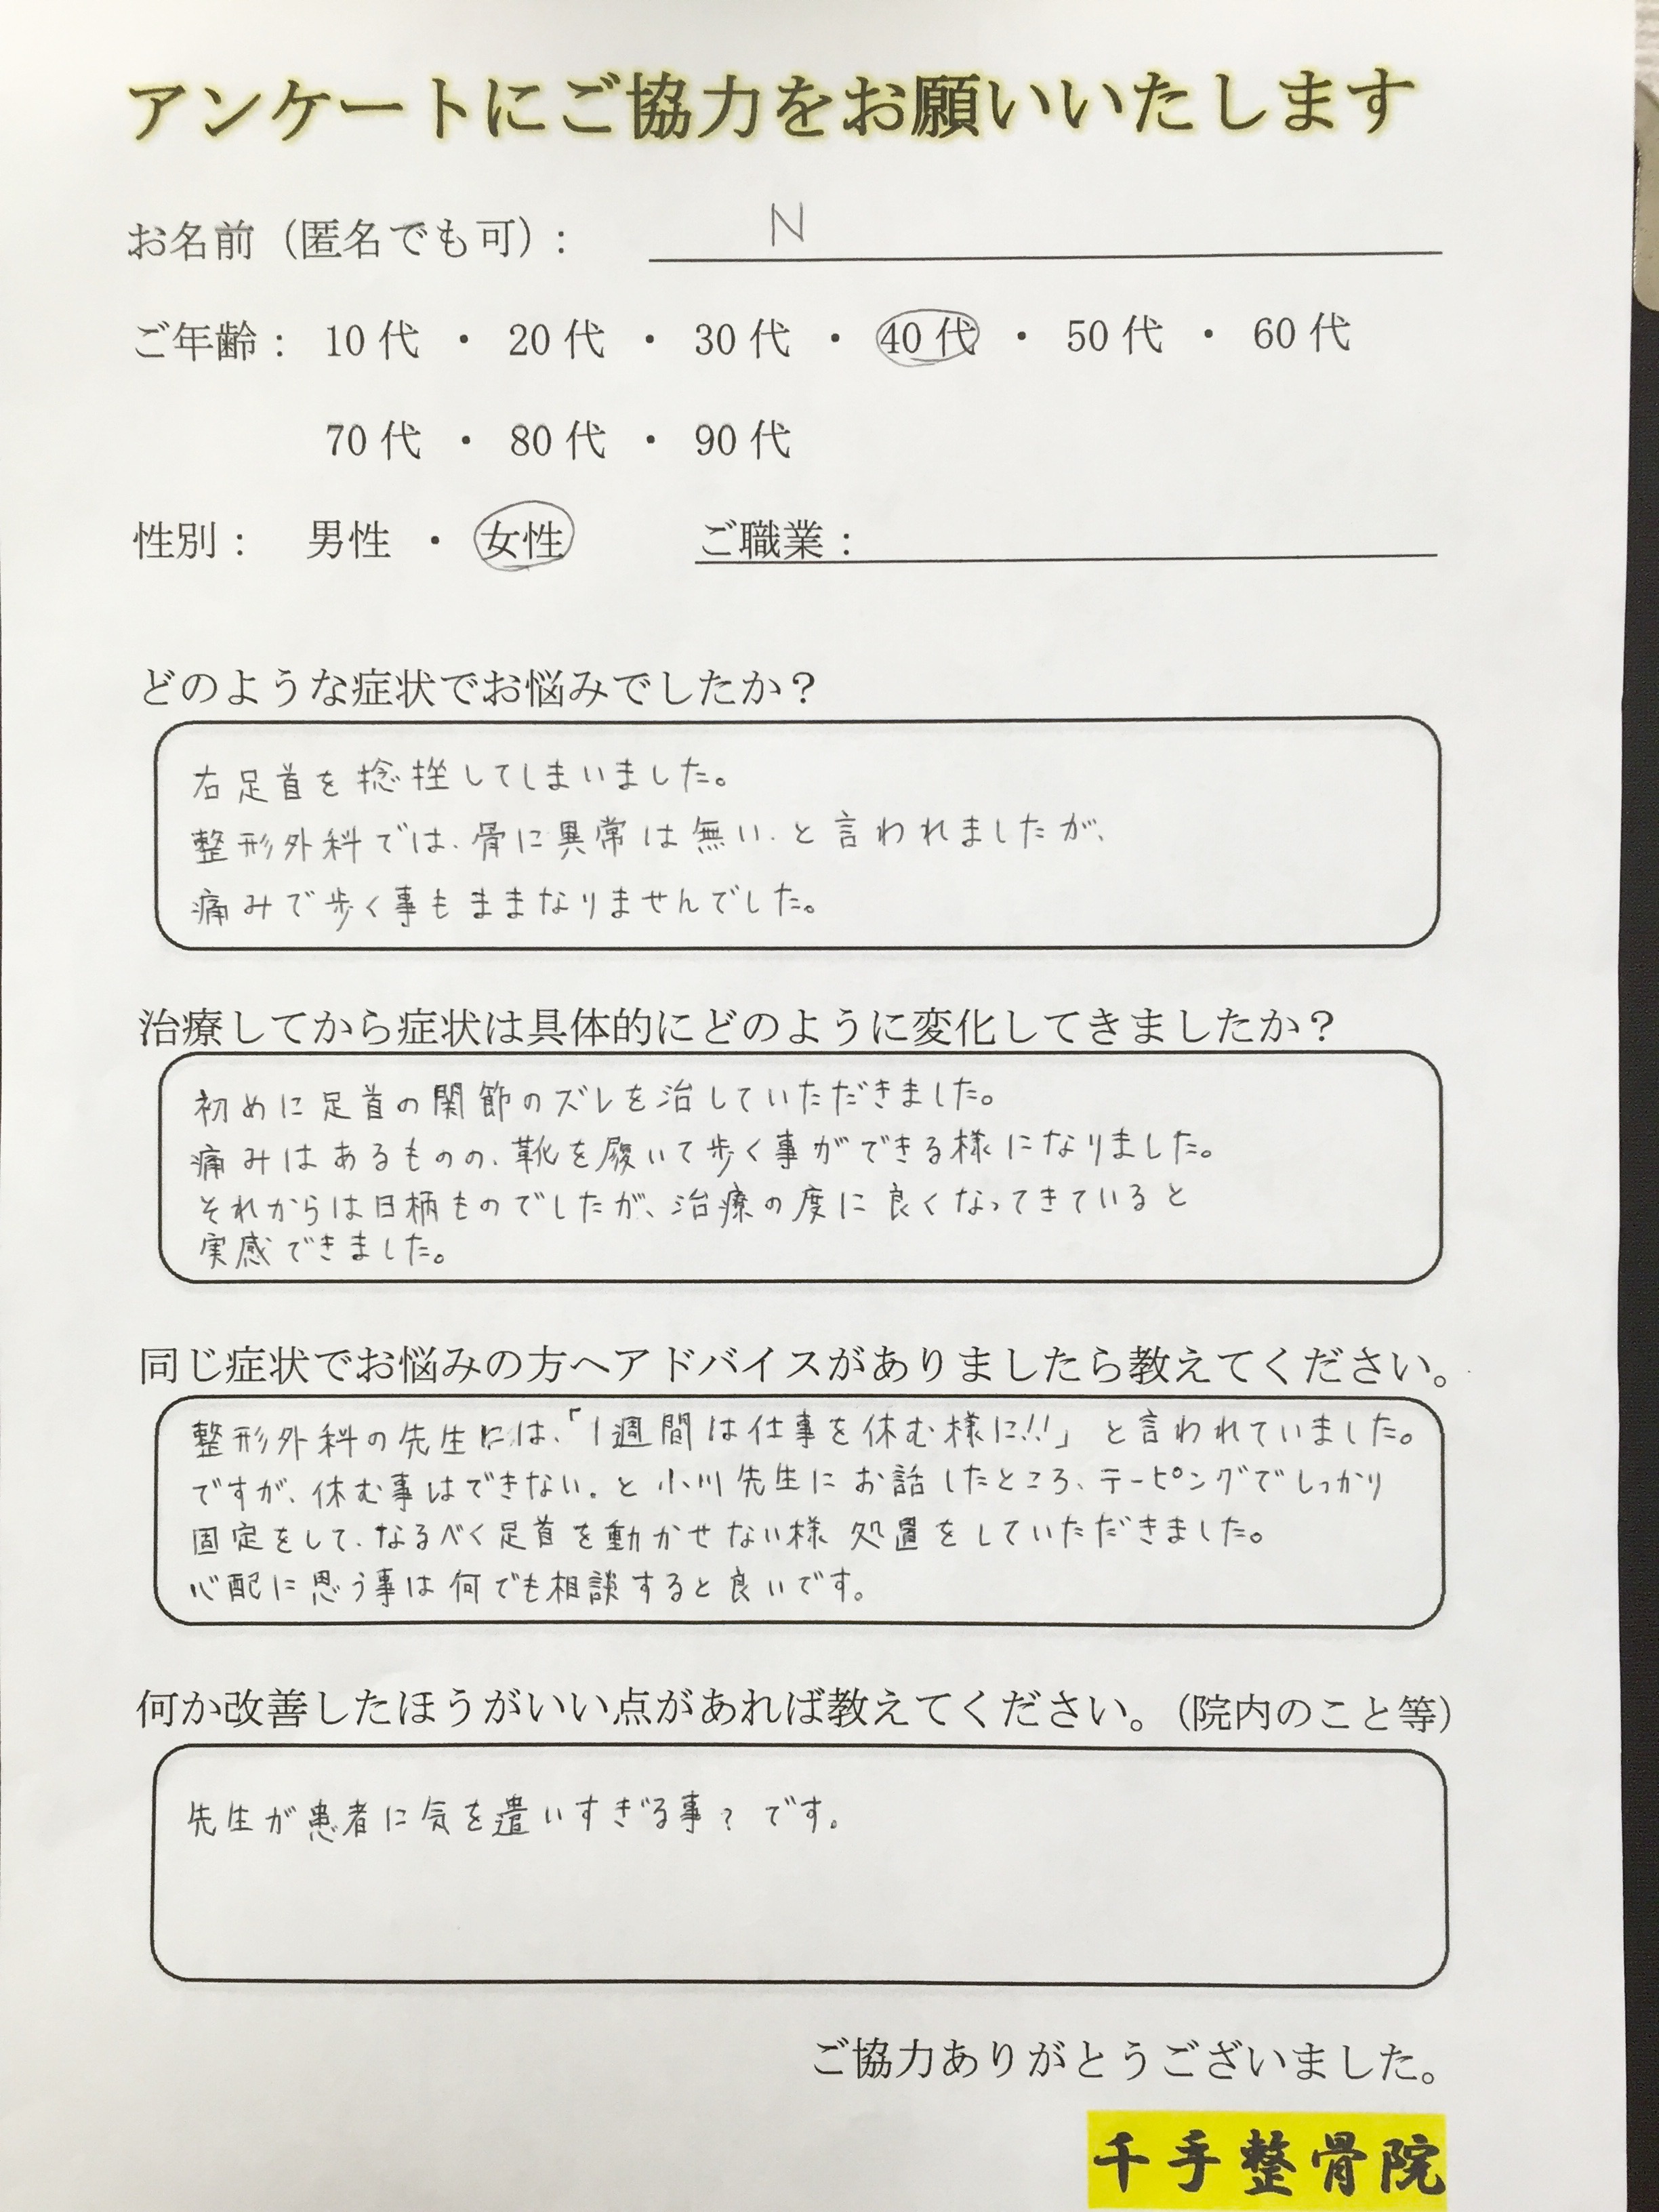 アンケートにご協力をお願いいたします
お名前（匿名でも可）： N
ご年齢： 10代 ・ 20代 ・ 30代 ・ 40代 ・ 50代 ・ 60代
70代 ・ 80代 ・ 90代
性別： 男性 ・ 女性 ご職業：
どのような症状でお悩みでしたか？
右足首を捻挫してしまいました。
整形外科では、骨に異常は無い、と言われましたが、
痛みで歩く事もままなりませんでした。
治療してから症状は具体的にどのように変化してきましたか？
初めに足首の関節のズレを治していただきました。
痛みはあるものの、靴を履いて歩く事ができる様になりました。
それからは日柄ものでしたが、治療の度に良くなってきていると
実感できました。
同じ症状でお悩みの方へアドバイスがありましたら教えてください。
整形外科の先生には、「1週間は仕事を休む様に!!」と言われていました。
ですが、休む事はできない。と小川先生にお話したところ、テーピングでしっかり
固定をして、なるべく足首を動かせない様処置をしていただきました。
心配に思う事は何でも相談すると良いです。
何か改善したほうがいい点があれば教えてください。（院内のこと等）
先生が患者に気を遣いすぎる事？です。
ご協力ありがとうございました。
千手整骨院